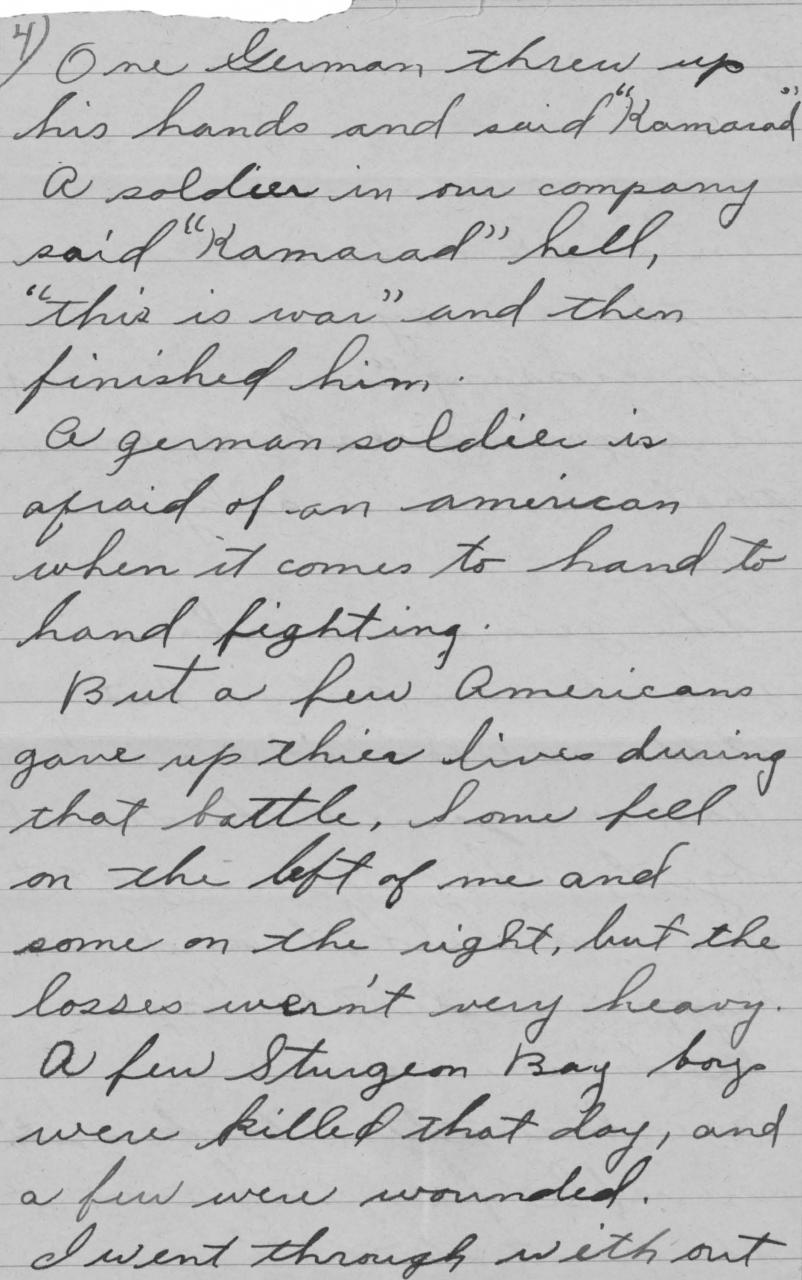 4)
One German threw up
his hands and said "Kamarad"
A soldier in our company
said "Kamarad" hell,
"this is war" and then
finished him.
A german soldier is
afraid of an american
when it comes to hand to
hand fighting.
But a few Americans
gave up thier lives during
that battle, Some fell
on the left of me and
some on the right, but the
losses wern't very heavy.
A few Sturgeon Bay boys
were killed that day, and
a few were wounded.
I went through with out